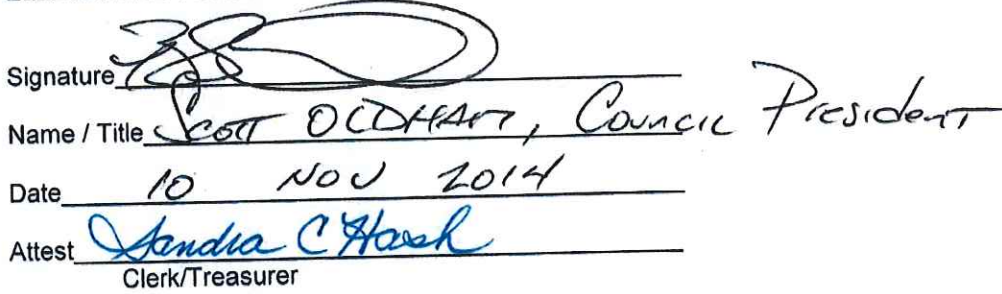 Signature
Name / Title Scott OLDHAM, Council President
Date 10 NOV 2014
Attest Sandra C Hash
Clerk/Treasurer